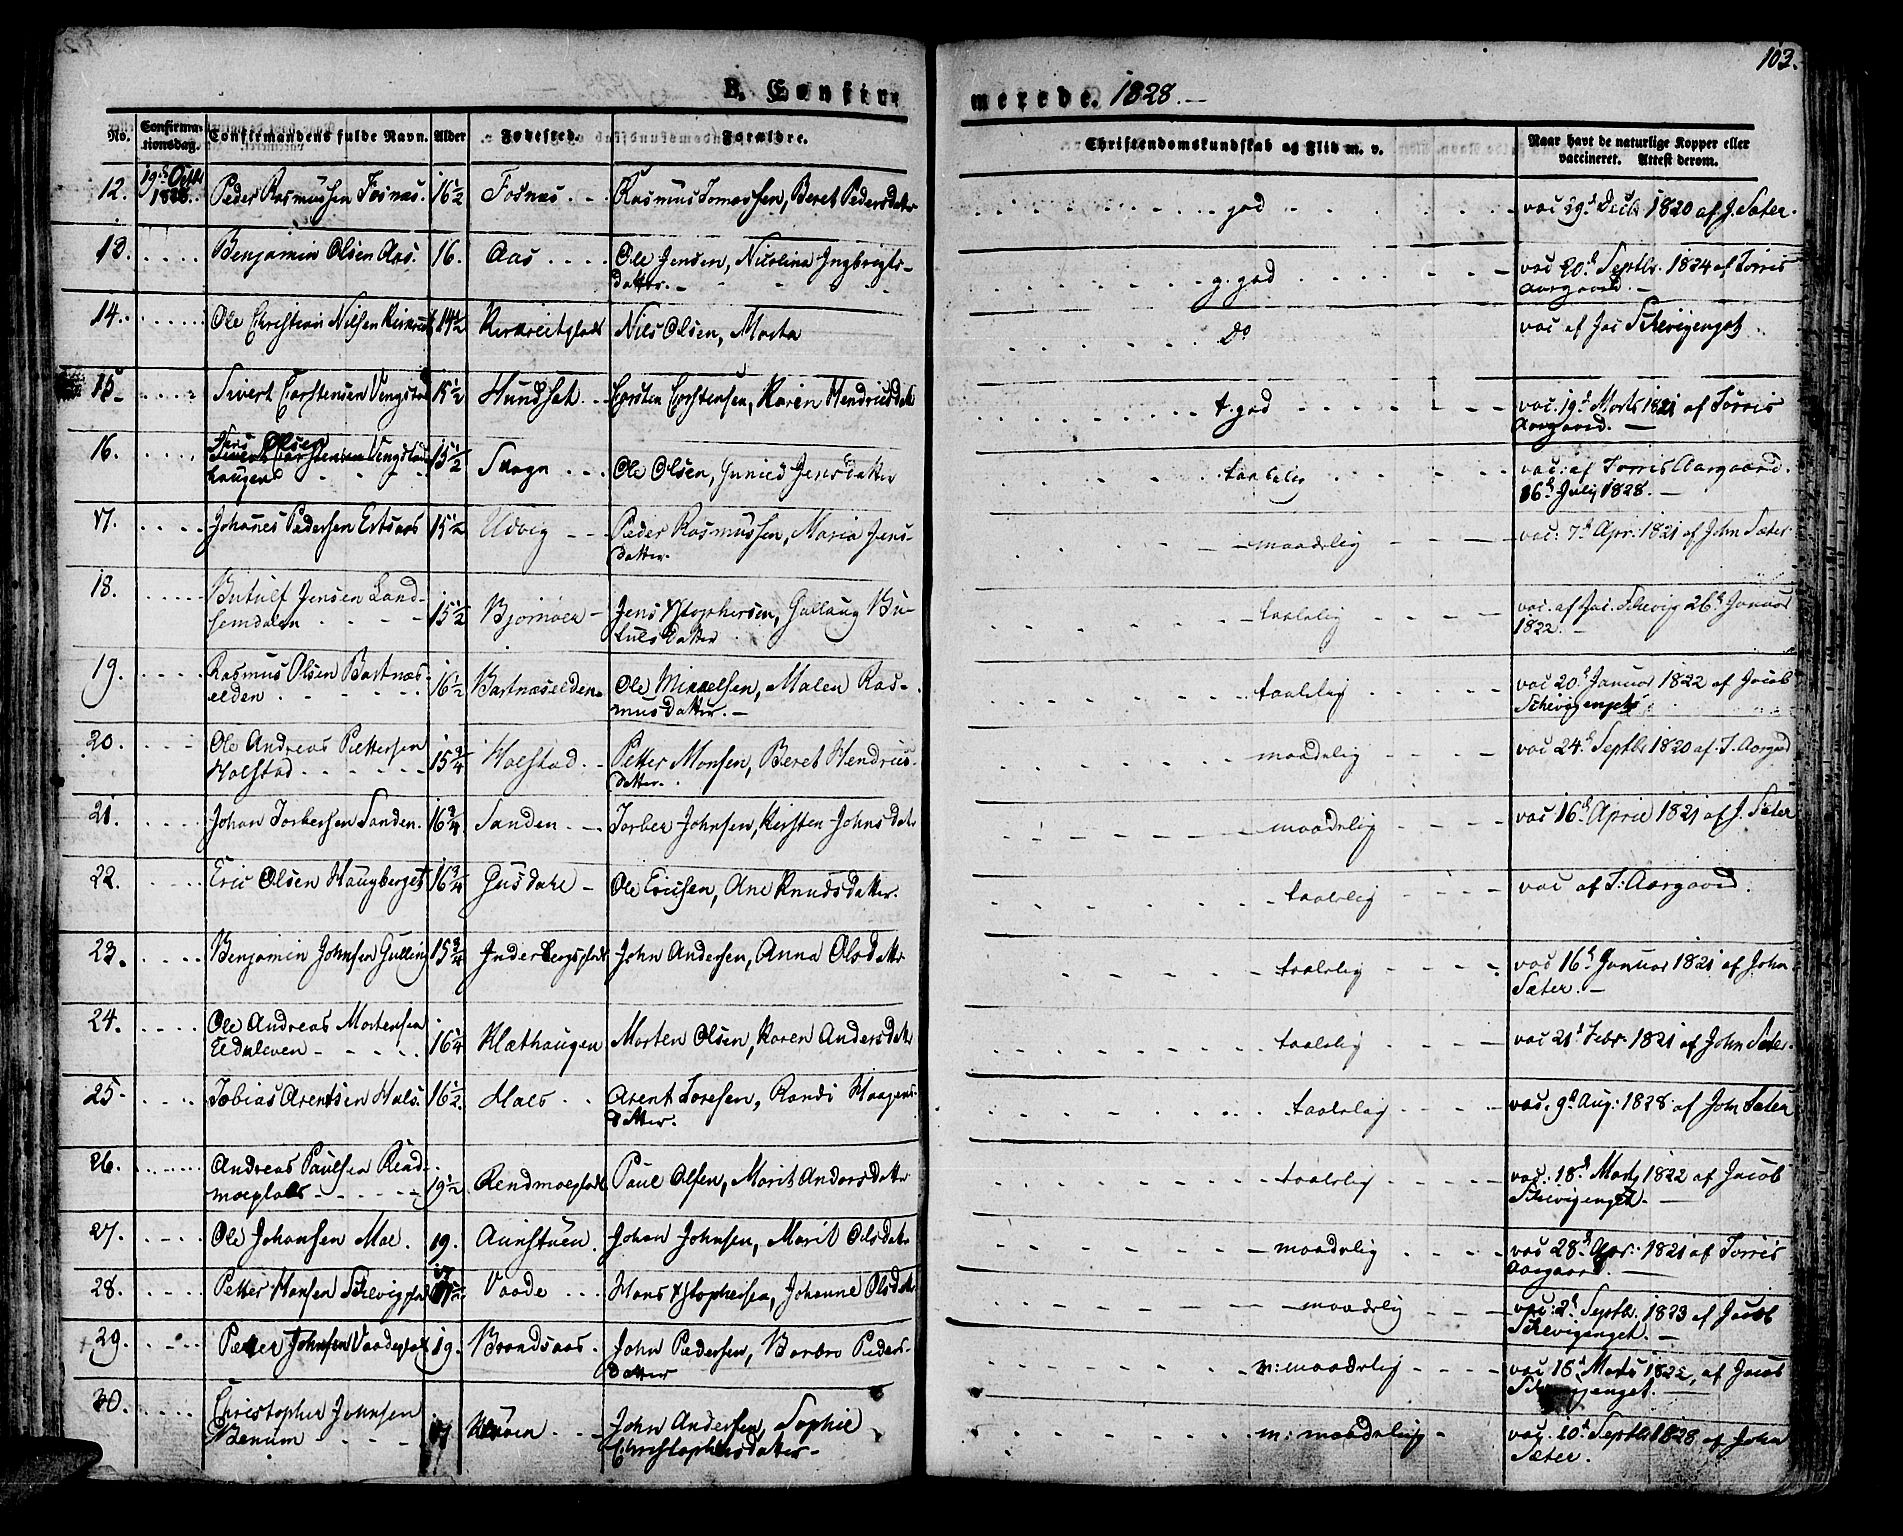 103.
B. Confir-
merede. 1828.-
No. Confirma-tionsdag. Confirmandens fulde Navn. Alder Fødested. Forældre. Christendomskundskab og Flid m. v. Naar havt de naturlige Kopper eller vaccineret. Attest derom.
12. 19d Octbr 1828. Peder Rasmussen Fosnæs. 16½ Fosnæs Rasmus Tomassen, Beret Pedersdatr god vac 29d Decbr 1820 af J. Sæter.
13. Benjamin Olsen Aas. 16. Aas Ole Jensen, Nicolina Ingbrigts-
datter.- g. god vac 20d Septbr. 1824 af Torris
Aargaard.-
14. Ole Christian Nilsen 14½ Nils Olsen, Marta do vac af Jac Schevigenget
15. Sivert Carstensen Vengstad 15½ Hundset Carsten Carstensen, Karen Hendricsdatr t. god vac. 19d Marts 1821 af Torris
Aargaard.-
16. Jens Olsen
Sivert Carstensen Vengstad
haugen 15½ Skogn Ole Olsen, Gunild Jensdatter taalelig vac: af Torris Aargaard.
16d July 1828.-
17. Johanes Pedersen 15½ Utvig Peder Rasmussen, Maria Jens-
datter. maadelig vac: 7d Apr: 1821 af John Sæter
18. Butulf Jensen Land-
semdalen 15½ Bjørnøer Jens Xstophersen, Gullaug Bu-
tulsdatter taalelig vac. af Jac. Schevig 26d Januar
1822.-
19. Rasmus Olsen Bartnæs-
elden 16½ Bartnæselden Ole Mikkelsen, Malen Ras-
musdatter.- taalelig vac 20d Januar 1822 af Jacob
Schevigenget
20. Ole Andreas Pettersen
Holstad 15¾ Holstad Petter Monsen, Beret Hendrics-
datter. maadelig vac 24d Septbr 1820 af T. Aargard
21. Johan Torbersen Sanden. 16¾ Sanden Torber Johnsen, Kirsten Johnsdatr maadelig vac 16d April 1821 af J. Sæter
22. Eric Olsen Haugberget 16¾ Gusdahl Ole Ericsen, Ane Knudsdatter. taalelig vac af T: Aargaard.
23. Benjamin Johnsen Gulling 15¾ Inderbergsplads John Andersen, Anna Olsdatr taalelig vac 16d Januar 1821 af John
Sæter.-
24. Ole Andreas Mortensen
16¼ Klæthaugen Morten Olsen, Karen Andersdatr taalelig vac 21d Febr. 1821 af John Sæter
25. Tobias Arentsen Hals. 16½ Hals Arent Toresen, Randi Haagens-
datter. taalelig vac. 9d Aug: 1828 af John Sæter
26. Andreas Paulsen Rend-
moeplads 19½ Rendmoeplads Paul Olsen, Marit Andersdatr taalelig vac: 18d Marts 1822 af Jacob
Schevigenget.-
27. Ole Johansen Moe. 19. Aunstuen Johan Johnsen, Marit Olsdatr maadelig vac 28d Apr. 1821 af Torris
Aargaard.-
28. Petter Hansen Schevigplads Vaade Hans Xstophersen, Johanne Olsdatr maadelig vac: 2d Septbr. 1823 af Jacob
Schevigenget.-
29. Petter Johnsen Vaadeplads 19. Brandsaas John Pedersen, Barbro Peders-
datter m: maadelig vac 15d Marts 1822, af Jacob
Schevigenget.-
30. Christopher Johnsen
Benum 17 John Andersen, Sophie
Christophersdatter- m: maadelig vac. 20d Septbr 1828 af John
Sæter.